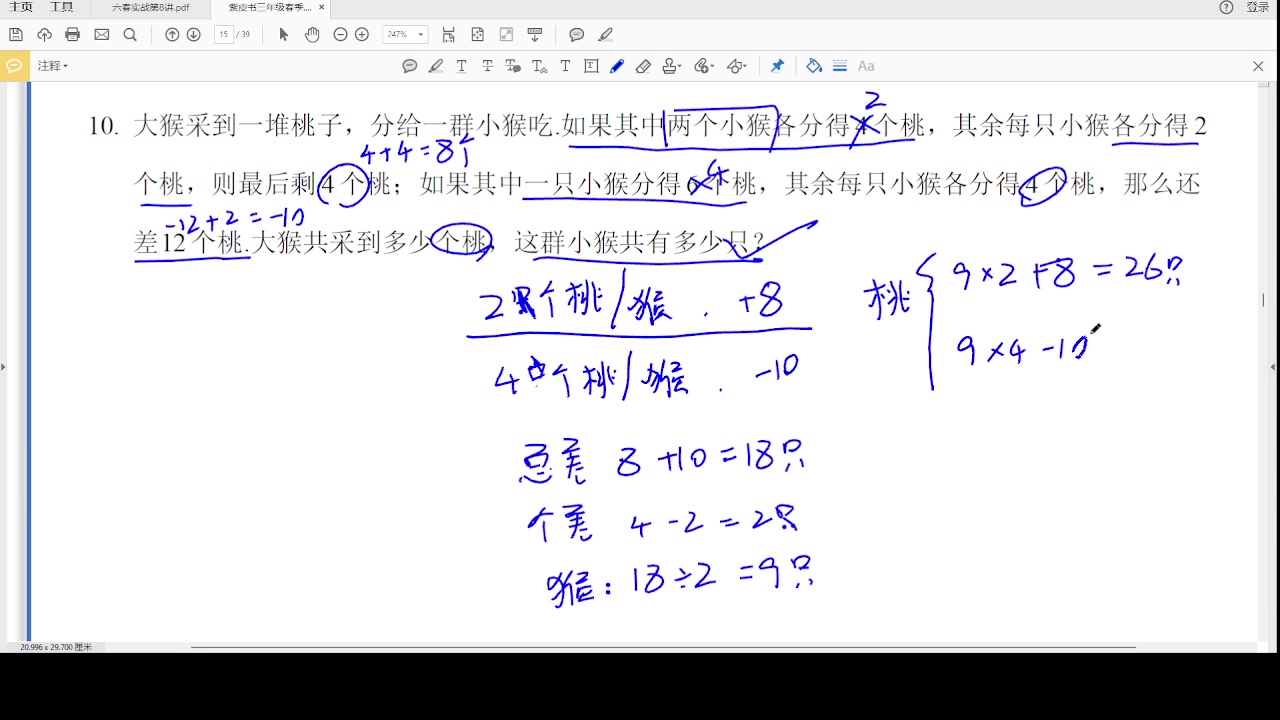 主页 工具 六春实战第8讲.pdf 紫皮书三年级春季... × 登录
15 / 39 247%
注释 Aa
2
10. 大猴采到一堆桃子，分给一群小猴吃.如果其中两个小猴各分得4个桃，其余每只小猴各分得2
4+4=8个
4
个桃，则最后剩4个桃；如果其中一只小猴分得6个桃，其余每只小猴各分得4个桃，那么还
-12+2=-10
差12个桃.大猴共采到多少个桃，这群小猴共有多少只？
2 个桃/猴 . +8
桃 { 9×2+8=26只
4 个桃/猴 . -10
9×4-10
总差 8+10=18只
个差 4-2=2只
猴：18÷2=9只
20.996 x 29.700 厘米